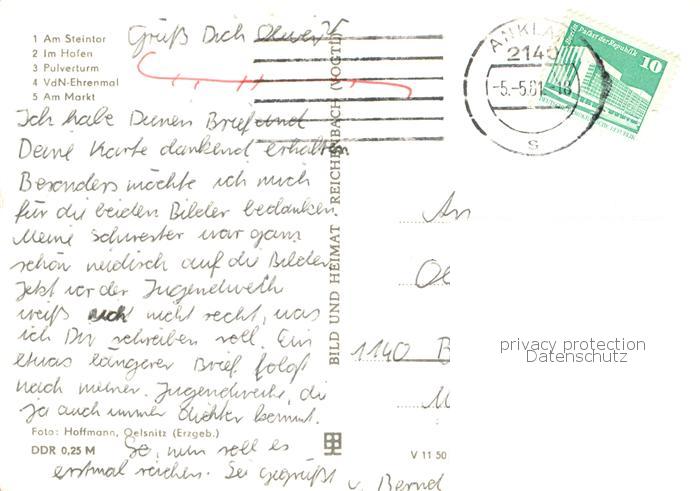 1 Am Steintor
2 Im Hafen
3 Pulverturm
4 VdN-Ehrenmal
5 Am Markt
Grüß Dich
Ich habe Deinen Brief und
Deine Karte dankend erhalten
Besonders möchte ich mich
für die beiden Bilder bedanken.
Meine Schwester war ganz
schön neidisch auf die Bilder
Jetzt vor der Jugendweih
weiß nicht recht, was
ich Dir schreiben soll. Ein
etwas längerer Brief folgt
nach meiner Jugendweihe, die
ja auch immer dichter kommt.
Foto: Hoffmann, Oelsnitz (Erzgeb.)
DDR 0,25 M
So, nun soll es
erstmal reichen. Sei gegrüßt
v. Bernd
BILD UND HEIMAT · REICHENBACH (VOGTL)
V 11 50
ANKLAM
2140
-5.-5.81-18
s
Berlin, Palast der Republik
10
DEUTSCHE DEMOKRATISCHE REPUBLIK
An
1140 B
privacy protection
Datenschutz